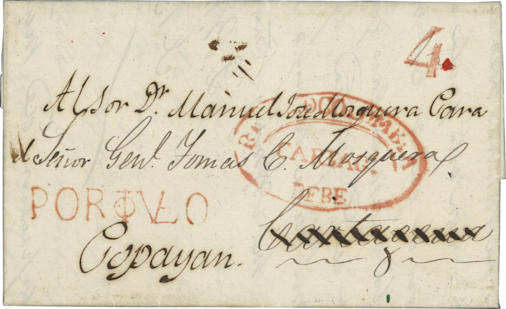 4
Al Sor Dr. Manuel José Mosquera Para
el Señor Genl. Tomas C. Mosquera
CARTAG
DEBE
PORTVLO
Popayan. Cartagena